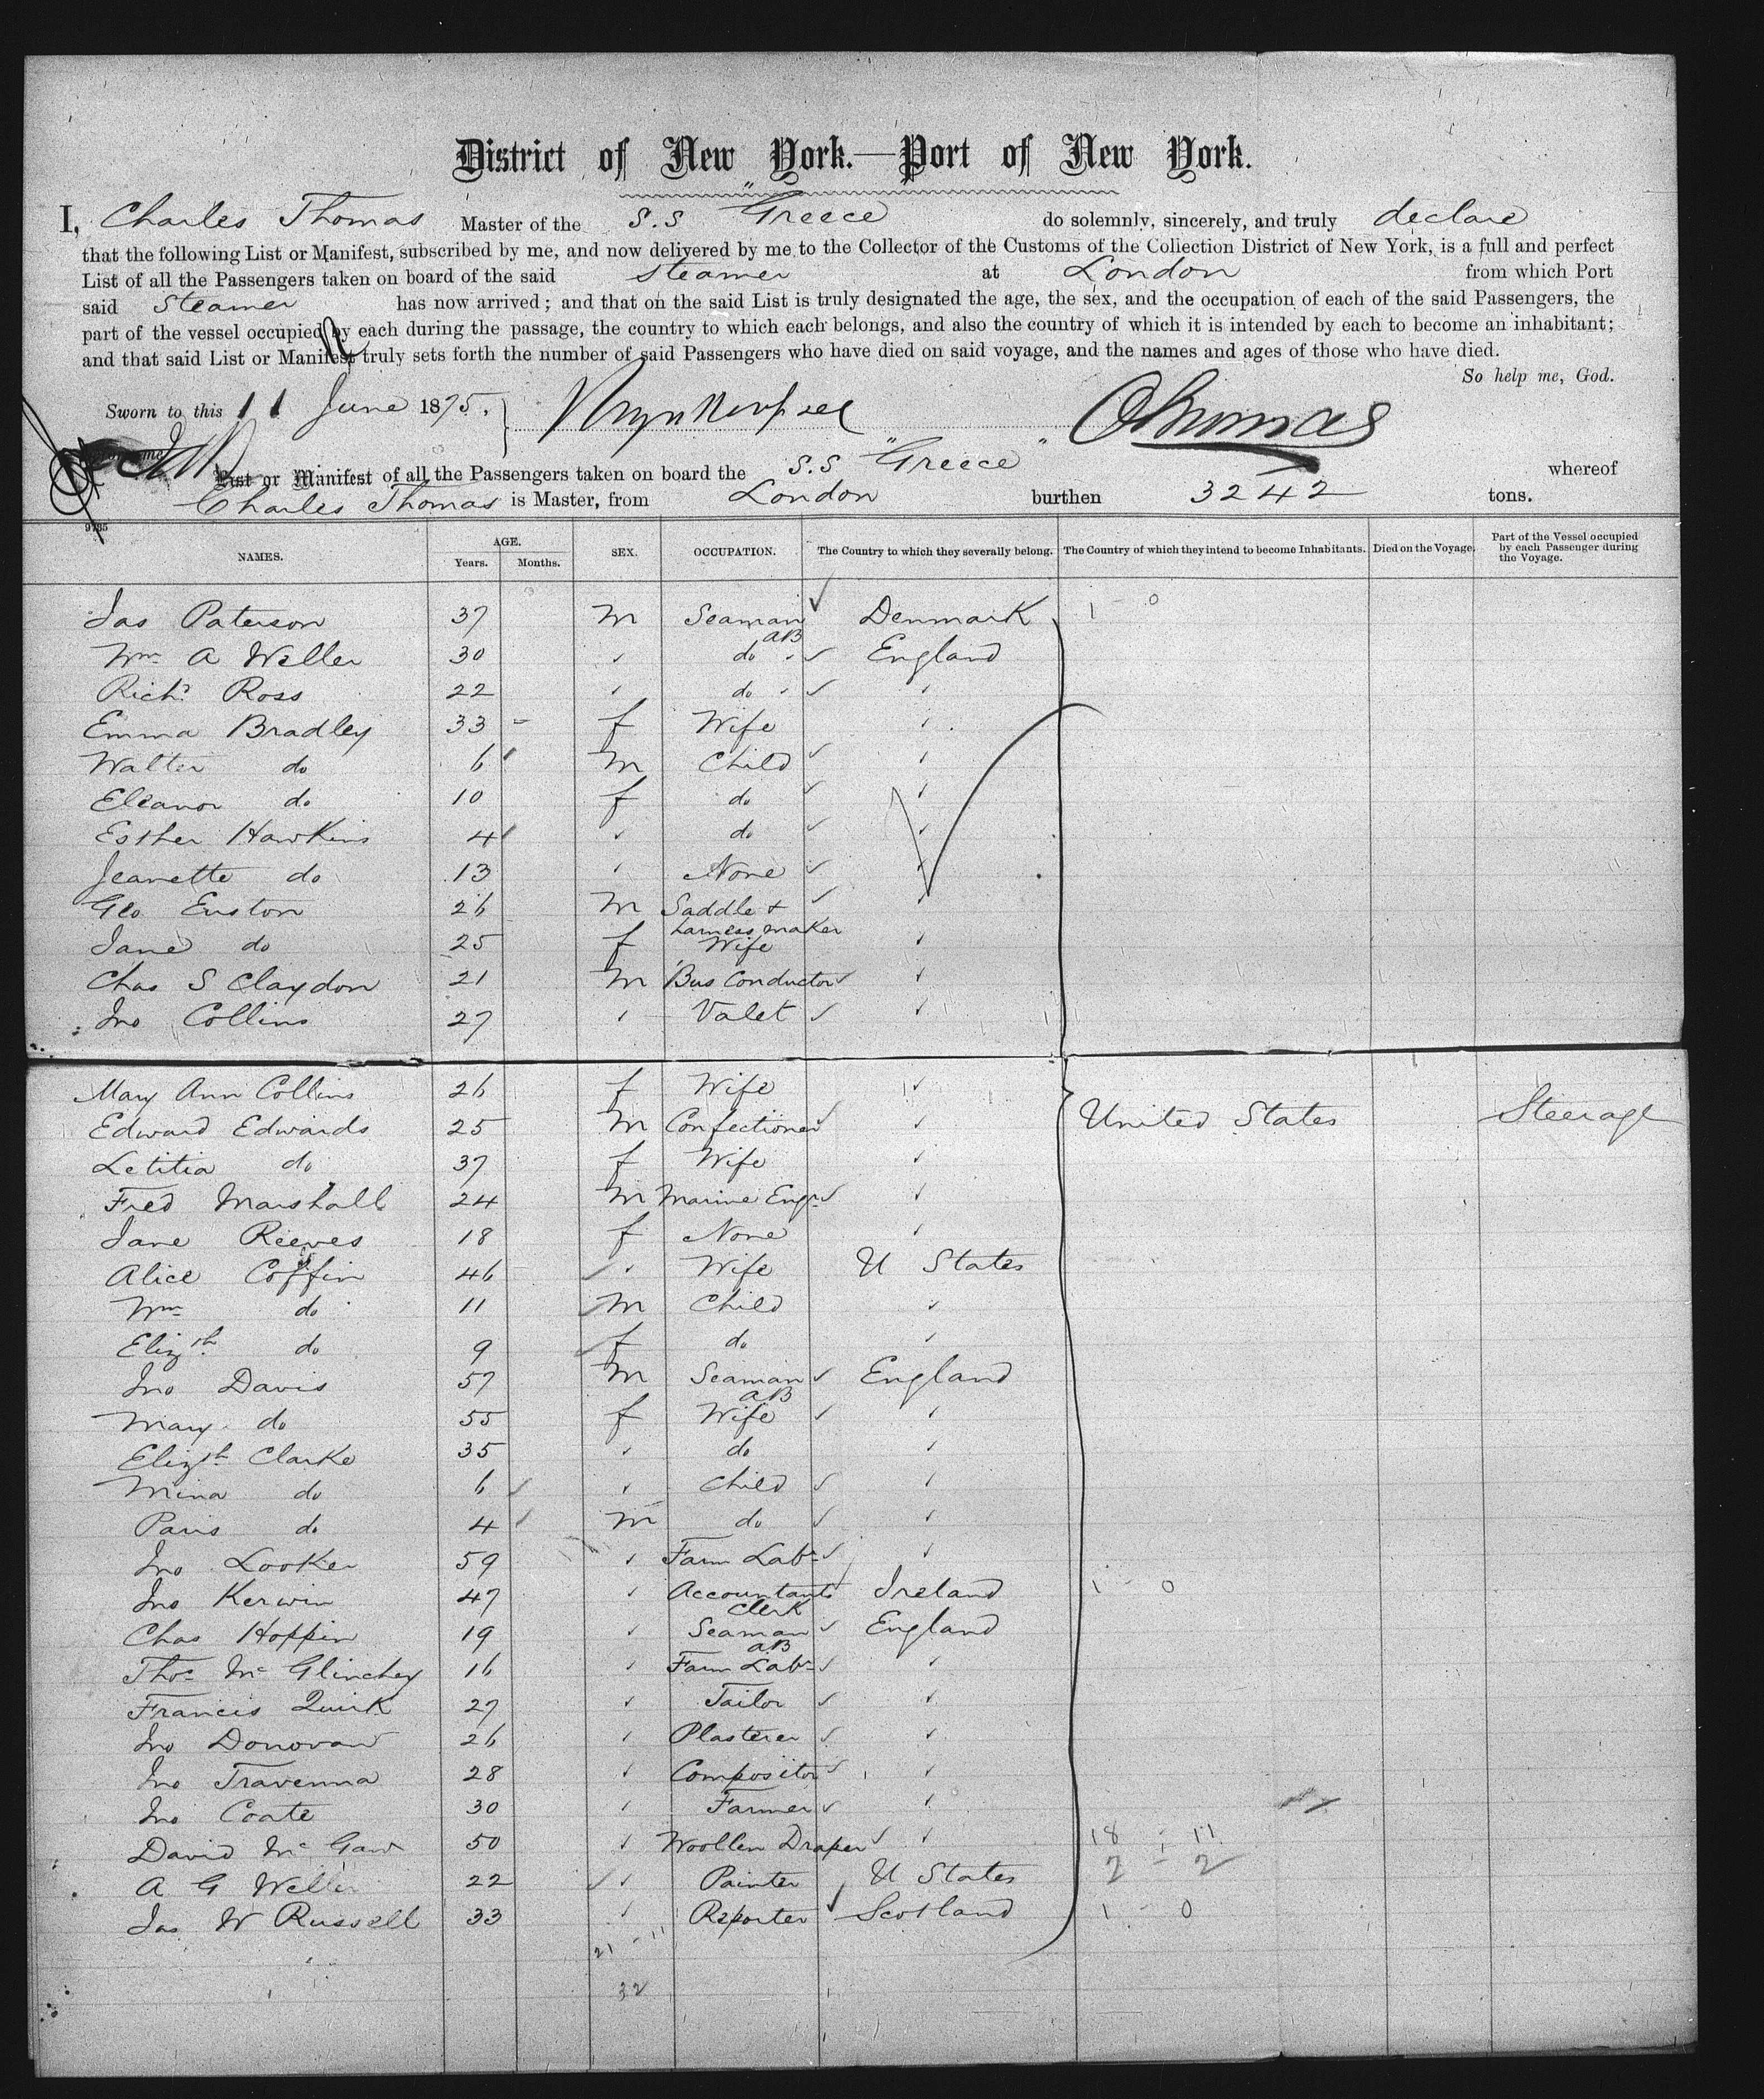 District of New York.—Port of New York.
I, Charles Thomas Master of the S.S "Greece" do solemnly, sincerely, and truly declare
that the following List or Manifest, subscribed by me, and now delivered by me to the Collector of the Customs of the Collection District of New York, is a full and perfect
List of all the Passengers taken on board of the said Steamer at London from which Port
said Steamer has now arrived; and that on the said List is truly designated the age, the sex, and the occupation of each of the said Passengers, the
part of the vessel occupied by each during the passage, the country to which each belongs, and also the country of which it is intended by each to become an inhabitant;
and that said List or Manifest truly sets forth the number of said Passengers who have died on said voyage, and the names and ages of those who have died.
So help me, God.
Sworn to this 11 June 1875. CThomas
List or Manifest of all the Passengers taken on board the S.S "Greece" whereof
Charles Thomas is Master, from London burthen 3242 tons.
9785
NAMES. AGE. Years. Months. SEX. OCCUPATION. The Country to which they severally belong. The Country of which they intend to become Inhabitants. Died on the Voyage. Part of the Vessel occupied by each Passenger during the Voyage.
Jas Paterson 37 M Seaman AB Denmark 1 - 0
Wm A Weller 30 do England
Richd Ross 22 do
Emma Bradley 33 f Wife
Walter do 6 M Child
Eleanor do 10 f do
Esther Hawkins 4 do
Jeanette do 13 None
Geo Euston 26 M Saddle & harness maker
Jane do 25 f Wife
Chas S Claydon 21 M Bus Conductor
Jno Collins 27 Valet
Mary Ann Collins 26 f Wife
Edward Edwards 25 M Confectioner United States Steerage
Letitia do 37 f Wife
Fred Marshall 24 M Marine Engr
Jane Reeves 18 f None
Alice Coffin 46 Wife U States
Wm do 11 M Child
Elizth do 9 f do
Jno Davis 57 M Seaman AB England
Mary do 55 f Wife
Elizth Clarke 35 do
Mina do 6 Child
Paris do 4 M do
Jno Looker 59 Farm Labr
Jno Kerwin 47 Accountants Clerk Ireland 1 - 0
Chas Hoppin 19 Seaman AB England
Thos McGlinchey 16 Farm Labr
Francis Quirk 27 Tailor
Jno Donovan 26 Plasterer
Jno Travenna 28 Compositor
Jno Coate 30 Farmer
David McGaw 50 Woollen Draper 18 - 11
A G Weller 22 Painter U States 2 - 2
Jas W Russell 33 Reporter Scotland 1 - 0
21 - 11
32